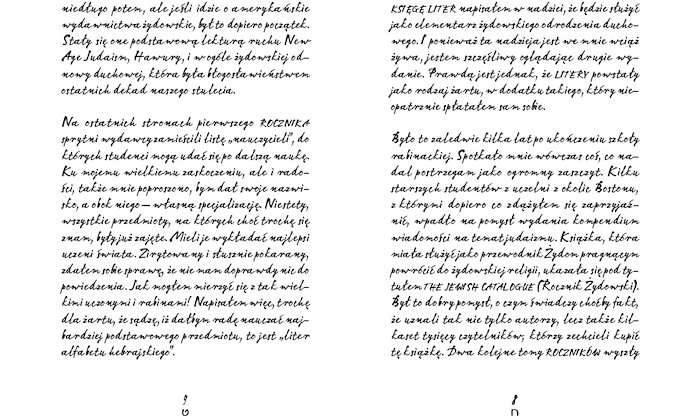 KSIĘGĘ LITER napisałem w nadziei, że będzie służyć
jako elementarz żydowskiego odrodzenia ducho-
wego. I ponieważ ta nadzieja jest we mnie wciąż
żywa, jestem szczęśliwy oglądając drugie wy-
danie. Prawdą jest jednak, że LITERY powstały
jako rodzaj żartu, w dodatku takiego, który nie-
opatrznie spłatałem sam sobie.
Było to zaledwie kilka lat po ukończeniu szkoły
rabinackiej. Spotkało mnie wówczas coś, co na-
dal postrzegam jako ogromny zaszczyt. Kilku
starszych studentów z uczelni z okolic Bostonu,
z którymi dopiero co zdążyłem się zaprzyjaź-
nić, wpadło na pomysł wydania kompendium
wiadomości na temat judaizmu. Książka, która
miała służyć jako przewodnik Żydom pragnącym
powrócić do żydowskiej religii, ukazała się pod ty-
tułem THE JEWISH CATALOGUE (Rocznik Żydowski).
Był to dobry pomysł, o czym świadczy choćby fakt,
że uznali tak nie tylko autorzy, lecz także kil-
kaset tysięcy czytelników, którzy zechcieli kupić
tę książkę. Dwa kolejne tomy ROCZNIKÓW wyszły
8
ח
niedługo potem, ale jeśli idzie o amerykańskie
wydawnictwa żydowskie, był to dopiero początek.
Stały się one podstawową lekturą ruchu New
Age Judaism, Hawury, i w ogóle żydowskiej od-
nowy duchowej, która była błogosławieństwem
ostatnich dekad naszego stulecia.
Na ostatnich stronach pierwszego ROCZNIKA
sprytni wydawcy zamieścili listę „nauczycieli”, do
których studenci mogą udać się po dalszą naukę.
Ku mojemu wielkiemu zaskoczeniu, ale i rado-
ści, także mnie poproszono, bym dał swoje nazwi-
sko, a obok niego — własną specjalizację. Niestety,
wszystkie przedmioty, na których choć trochę się
znam, były już zajęte. Mieli je wykładać najlepsi
uczeni świata. Zirytowany i słusznie pokarany,
zdałem sobie sprawę, że nie mam doprawdy nic do
powiedzenia. Jak mogłem mierzyć się z tak wiel-
kimi uczonymi i rabinami! Napisałem więc, trochę
dla żartu, że sądzę, iż dałbym radę nauczać naj-
bardziej podstawowego przedmiotu, to jest „liter
alfabetu hebrajskiego”.
9
ט